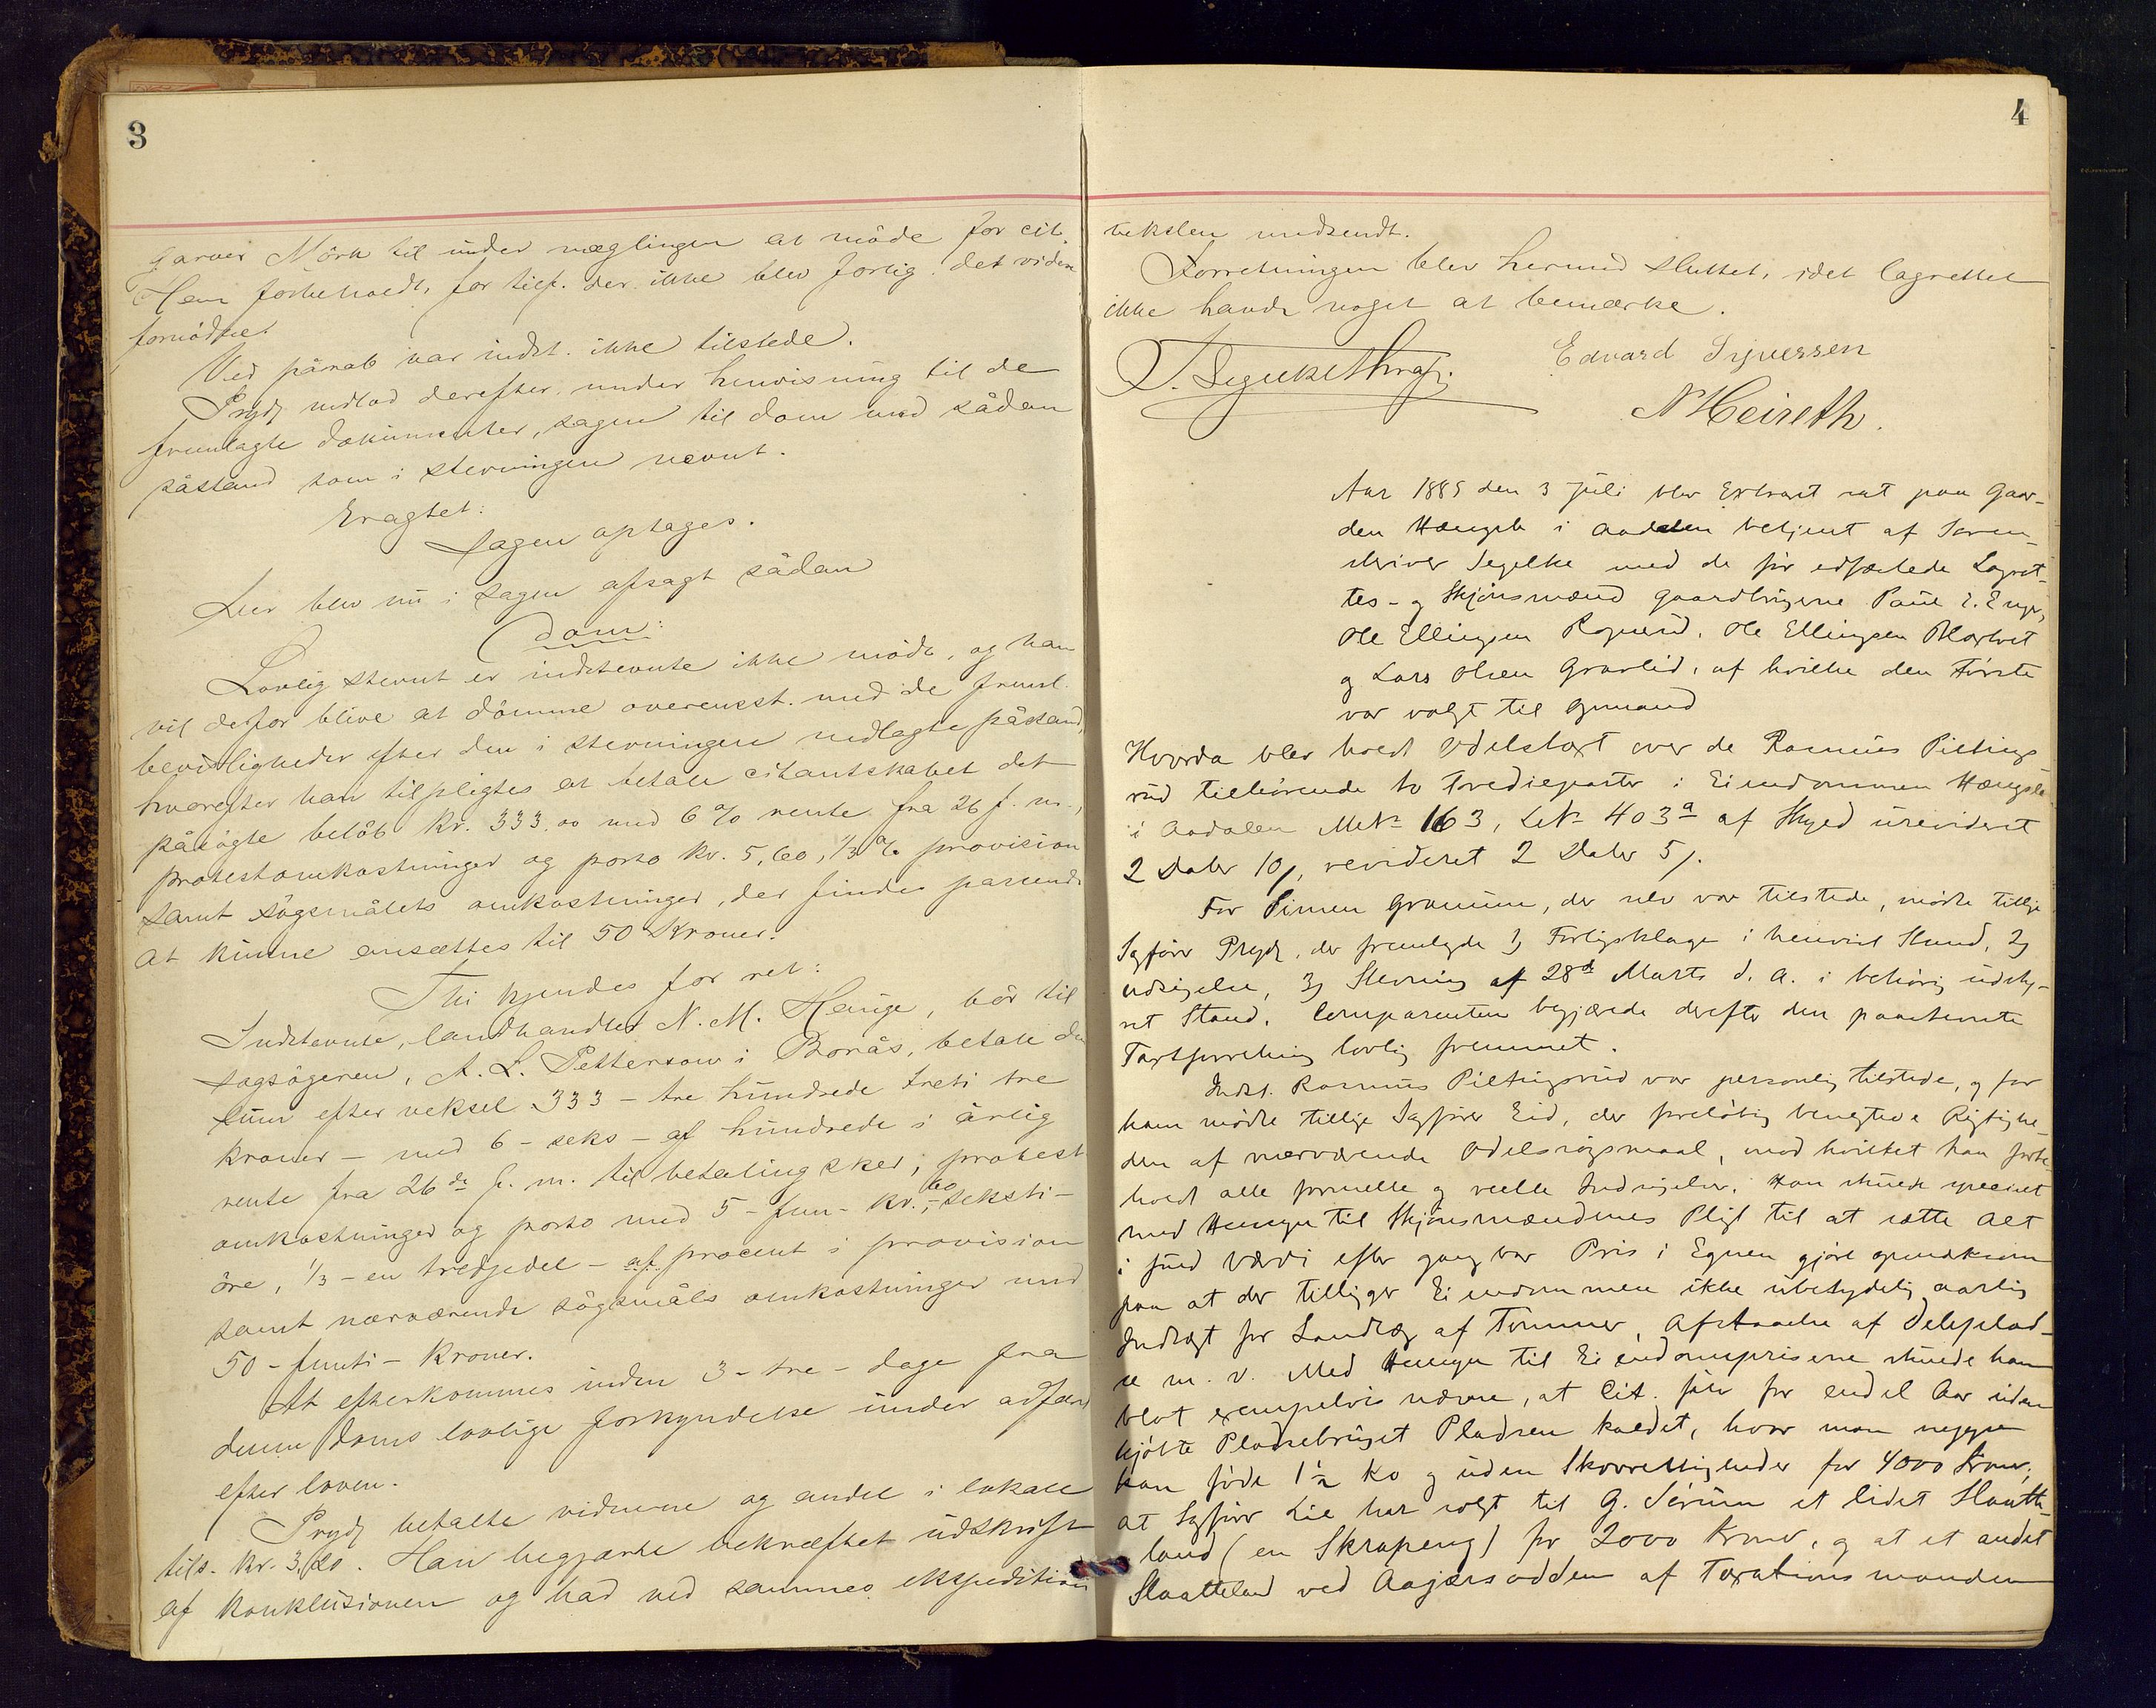 3
garver Mörk til under mæglingen at möde for cit.
Hem forbeholdt, for tilf. der ikke blev forlig, det viden
fornödne.
Ved påraab var indst. ikke tilstede.
Prydz indlod derefter under henvisning til de
fremlagte dokumenter, sagen til dom med sådan
påstand som i stevningen nevnt.
Eragtet:
Sagen optages.
Der blev nu i sagen afsagt sådan
Dom:
Lovlig stevnt er indstevnte ikke mödt, og han
vil derfor blive at dömme overensst. med de freml.
bevisligheder efter den i stevningen nedlagte påstand,
hvorefter han tilpligtes at betale citantskabet det
påsögte belöb kr. 333.00 med 6 % rente fra 26 f. m.,
protestomkostninger og porto kr. 5,60, 1/3 % provision
samt sögsmålets omkostninger, der findes passende
at kunne ansættes til 50 Kroner.
Thi kjendes for ret:
Indstevnte, landhandler N. M. Hauge, bör til
sagsögeren, A. L. Petterson i Borås, betale den
sum efter veksel 333 – tre hundrede treti tre
kroner – med 6 – seks – af hundrede i årlig
rente fra 26de f. m. til betaling sker, protest
omkostninger og porto med 5 – fem – kr. 60 – seksti –
öre, 1/3 – en tredjedel – af procent i provision
samt nærværende sögsmåls omkostninger med
50 – femti – Kroner.
At efterkommes inden 3 – tre – dage fra
denne doms lovlige forkyndelse under adfærd
efter loven.
Prydz betalte vidnerne og andel i lokale
tils. kr. 3,20. Han begjærte bekræftet udskrift
af konklusionen og bad ved sammes ekspedition
4
vekslen medsendt.
Forretningen blev hermed sluttet, idet lagrettet
ikke havde noget at bemærke.
Edvard Syversen
N Heireth.
Aar 1889 den 3 Juli blev Extraret sat paa Gaar-
den Hængsle i Aadalen betjent af Soren-
skriver Segelke med de før edfæstede Lagret-
tes- og Skjønsmænd Gaardbrugerne Paul E. Enger,
Ole Ellingsen Rognerud, Ole Ellingsen
og Lars Olsen Gravlid, af hvilke den Første
var valgt til Opmand
Hvorda blev holdt Odelstaxt over de Rasmus Piltings
rud tilhørende to Tredieparter i Eiendommen Hængsle
i Aadalen MtN 163, LN 403a af Skyld urevideret
2 Daler 10/, revideret 2 Daler 5/.
For Simen Gramum, der selv var tilstede, mødte tillige
Sagfører Prydz, der fremlagde 1) Forligsklage i henvist Stand, 2)
Udsigelse, 3) Stevning af 28de Marts d. A. i behørig udsty-
ret Stand. Comparenten begjærede derefter den paastevnte
Taxtforretning lovlig fremmet.
Indst. Rasmus Piltingsrud var personlig tilstede, og for
ham mødte tillige Sagfører Eid, der foreløbig benegtede Rigtighe-
den af nærværende Odelssøgsmaal, mod hvilket han forbe-
holdt alle formelle og reelle Indsigelser. Han skulde specielt
med Hensyn til Skjønsmændenes Pligt til at sætte Alt
i fuld Værdi efter gangbar Pris i Egnen gjøre opmærksom
paa at der tilligger Eiendommen ikke ubetydelig aarlig
Indtægt for Landlæg af Tømmer, Afstaaelse af Velteplad-
se m. v. Med Hensyn til Eiendomspriserne skulde han
blot exempelvis nævne, at Cit. selv for endel Aar siden
kjøbte Pladsebruget Pladsen kaldet, hvor man neppe
kan føde 1½ Ko og uden Skovrettigheder for 4000 Kroner,
at Sagfører Lie har solgt til G. Sørum et lidet Slaatte
land (en Skrapeng) for 2000 Kroner, og at et andet
Slaatteland ved Aagjærsodden af Taxationsmanden